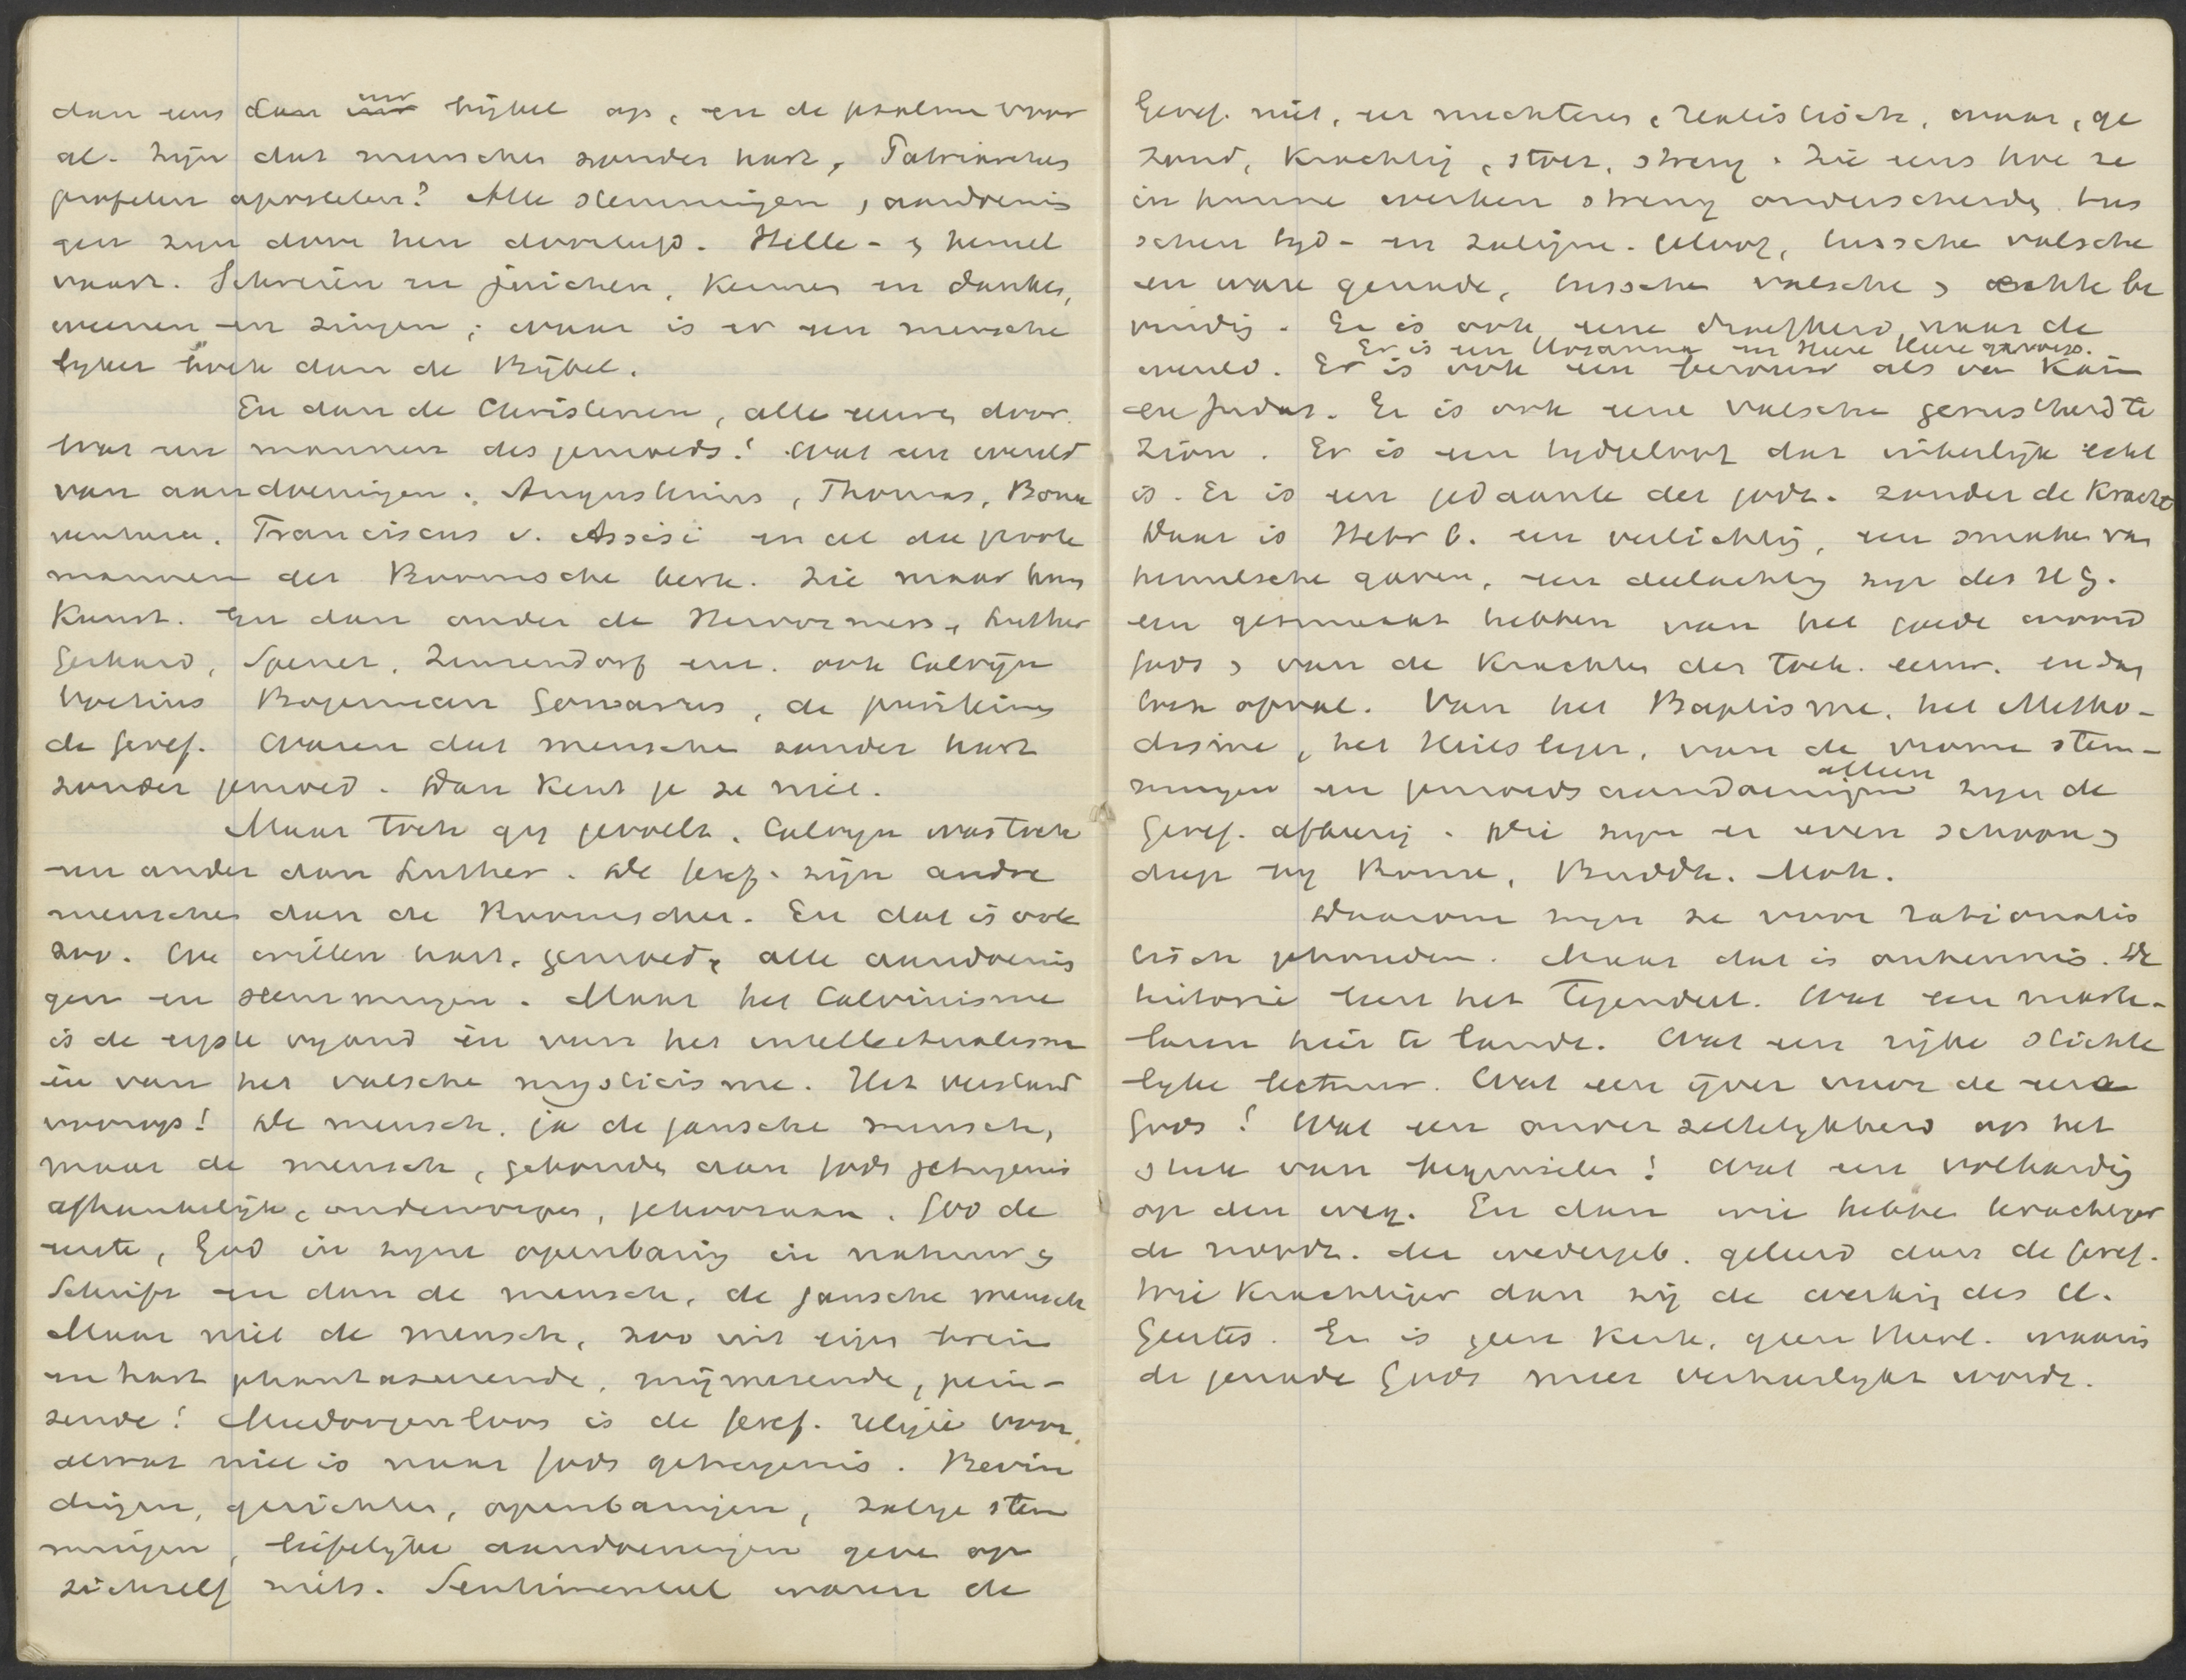 dan eens dan uw bijbel op, en de psalmen voor
al. Zijn dat menschen zonder hart, Patriarchen
profeten apostelen? Alle stemmingen, aandoenin
gen zijn door hen doorleefd. Helle- & hemel
vaart. Schreien en juichen, kermen en danken,
weenen en zingen; waar is er een mensche
lijker boek dan de Bijbel.
En dan de Christenen, alle eeuwen door.
Wat een mannen des gemoeds! Wat een wereld
van aandoeningen. Augustinus, Thomas, Bona
ventura. Franciscus v. Assisi en al die groote
mannen der Roomsche kerk. Zie maar hun
Kunst. En dan onder de Hervormers, Luther
Gerhard, Spener, Zinzendorf enz. ook Calvijn
Voetius Bogerman Gomarus, de puriteinen
de Geref. Waren dat menschen zonder hart
zonder gemoed. Dan kent ge ze niet.
Maar toch gij gevoelt. Calvijn was toch
een ander dan Luther. De Geref. zijn andre
menschen dan de Roomschen. En dat is ook
zoo. We willen hart, gemoed, alle aandoenin
gen en stemmingen. Maar het Calvinisme
is de ergste vijand én van het intellectualisme
én van het valsche mysticisme. Het verstand
voorop! De mensch, ja de gansche mensch,
maar de mensch, gebonden aan Gods getuigenis
afhankelijk, onderworpen, gehoorzaam. God de
eerste, God in zijne openbaring in natuur &
Schrift en dan de mensch, de gansche mensch
Maar niet de mensch, zoo uit eigen brein
en hart phantaseerende, mijmerende, pein-
zende! Meedoogenloos is de Geref. religie voor
alwat niet is naar Gods getuigenis. Bevin
dingen, gezichten, openbaringen, zalige stem
mingen, liefelijke aandoeningen geven op
zichzelf niets. Sentimenteel waren de
Geref. niet, en nuchteren, realistisch, waar, ge
zond, krachtig, stoer, streng. Zie eens hoe ze
in hunne werken streng onderscheiden tus
schen tijd- en zaligm. geloof, tusschen valsche
en ware genade, tusschen valsche & echte be
vinding. Er is ook eene droefheid naar de
Er is een Hosanna en Heere Heere geroep.
wereld. Er is ook een berouw als van Kaïn
en Judas. Er is ook eene valsche gerustheid te
Zion. Er is een tijdgeloof dat innerlijk echt
is. Er is een gedaante der godz. zonder de kracht
Daar is Hebr 6. een verlichting, een smaken van
hemelsche gaven, een deelachtig zijn des H G.
een gesmaakt hebben van het goede woord
Gods & van de krachten der toek. eeuw. en dan
toch afval. Van het Baptisme, het Metho-
disme, het Heilsleger, van de vrome stem-
mingen en gemoedsaandoeningen alleen zijn de
Geref. afkeerig. Die zijn er even schoon &
diep bij Rome, Buddh. Moh.
Daarom zijn ze voor rationalis
tisch gehouden. Maar dat is onkennis. De
historie leert het tegendeel. Wat een marte-
laren hier te lande. Wat een rijke stichte
lijke lectuur. Wat een ijver voor de eere
Gods! Wat een onverzettelijkheid op het
stuk van beginselen! Wat een volharding
op den weg. En dan wie hebben krachtiger
de noodz. der wedergeb. geleerd dan de Geref.
Wie krachtiger dan zij de werking des H.
Geestes. Er is geen kerk, geen theol. waarin
de genade Gods meer verheerlijkt wordt.